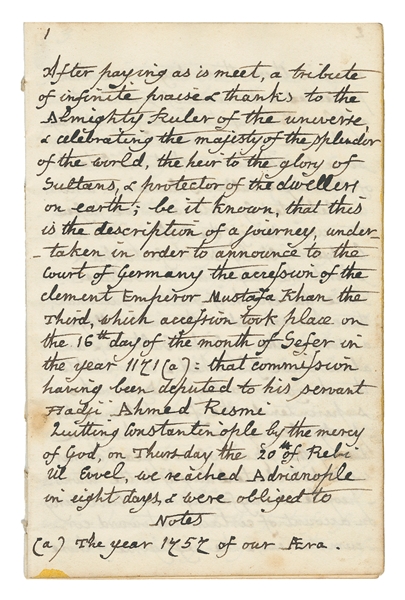 1
After paying as is meet, a tribute
of infinite praise & thanks to the
Almighty Ruler of the universe,
& celebrating the majesty of the splendor
of the world, the heir to the glory of
Sultans, & protector of the dwellers
on earth; be it known, that this
is the description of a journey, under-
-taken in order to announce to the
Court of Germany the accession of the
clement Emperor Mustafa Khan the
Third, which accession took place on
the 16th day of the month of Sefer in
the year 1171 (a): that commission
having been deputed to his servant
Hadji Ahmed Resmi
Quitting Constantinople by the mercy
of God, on Thursday the 20th of Rebi
ul Evvel, we reached Adrianople
in eight days, & were obliged to
Notes
(a) The year 1757 of our Æra.